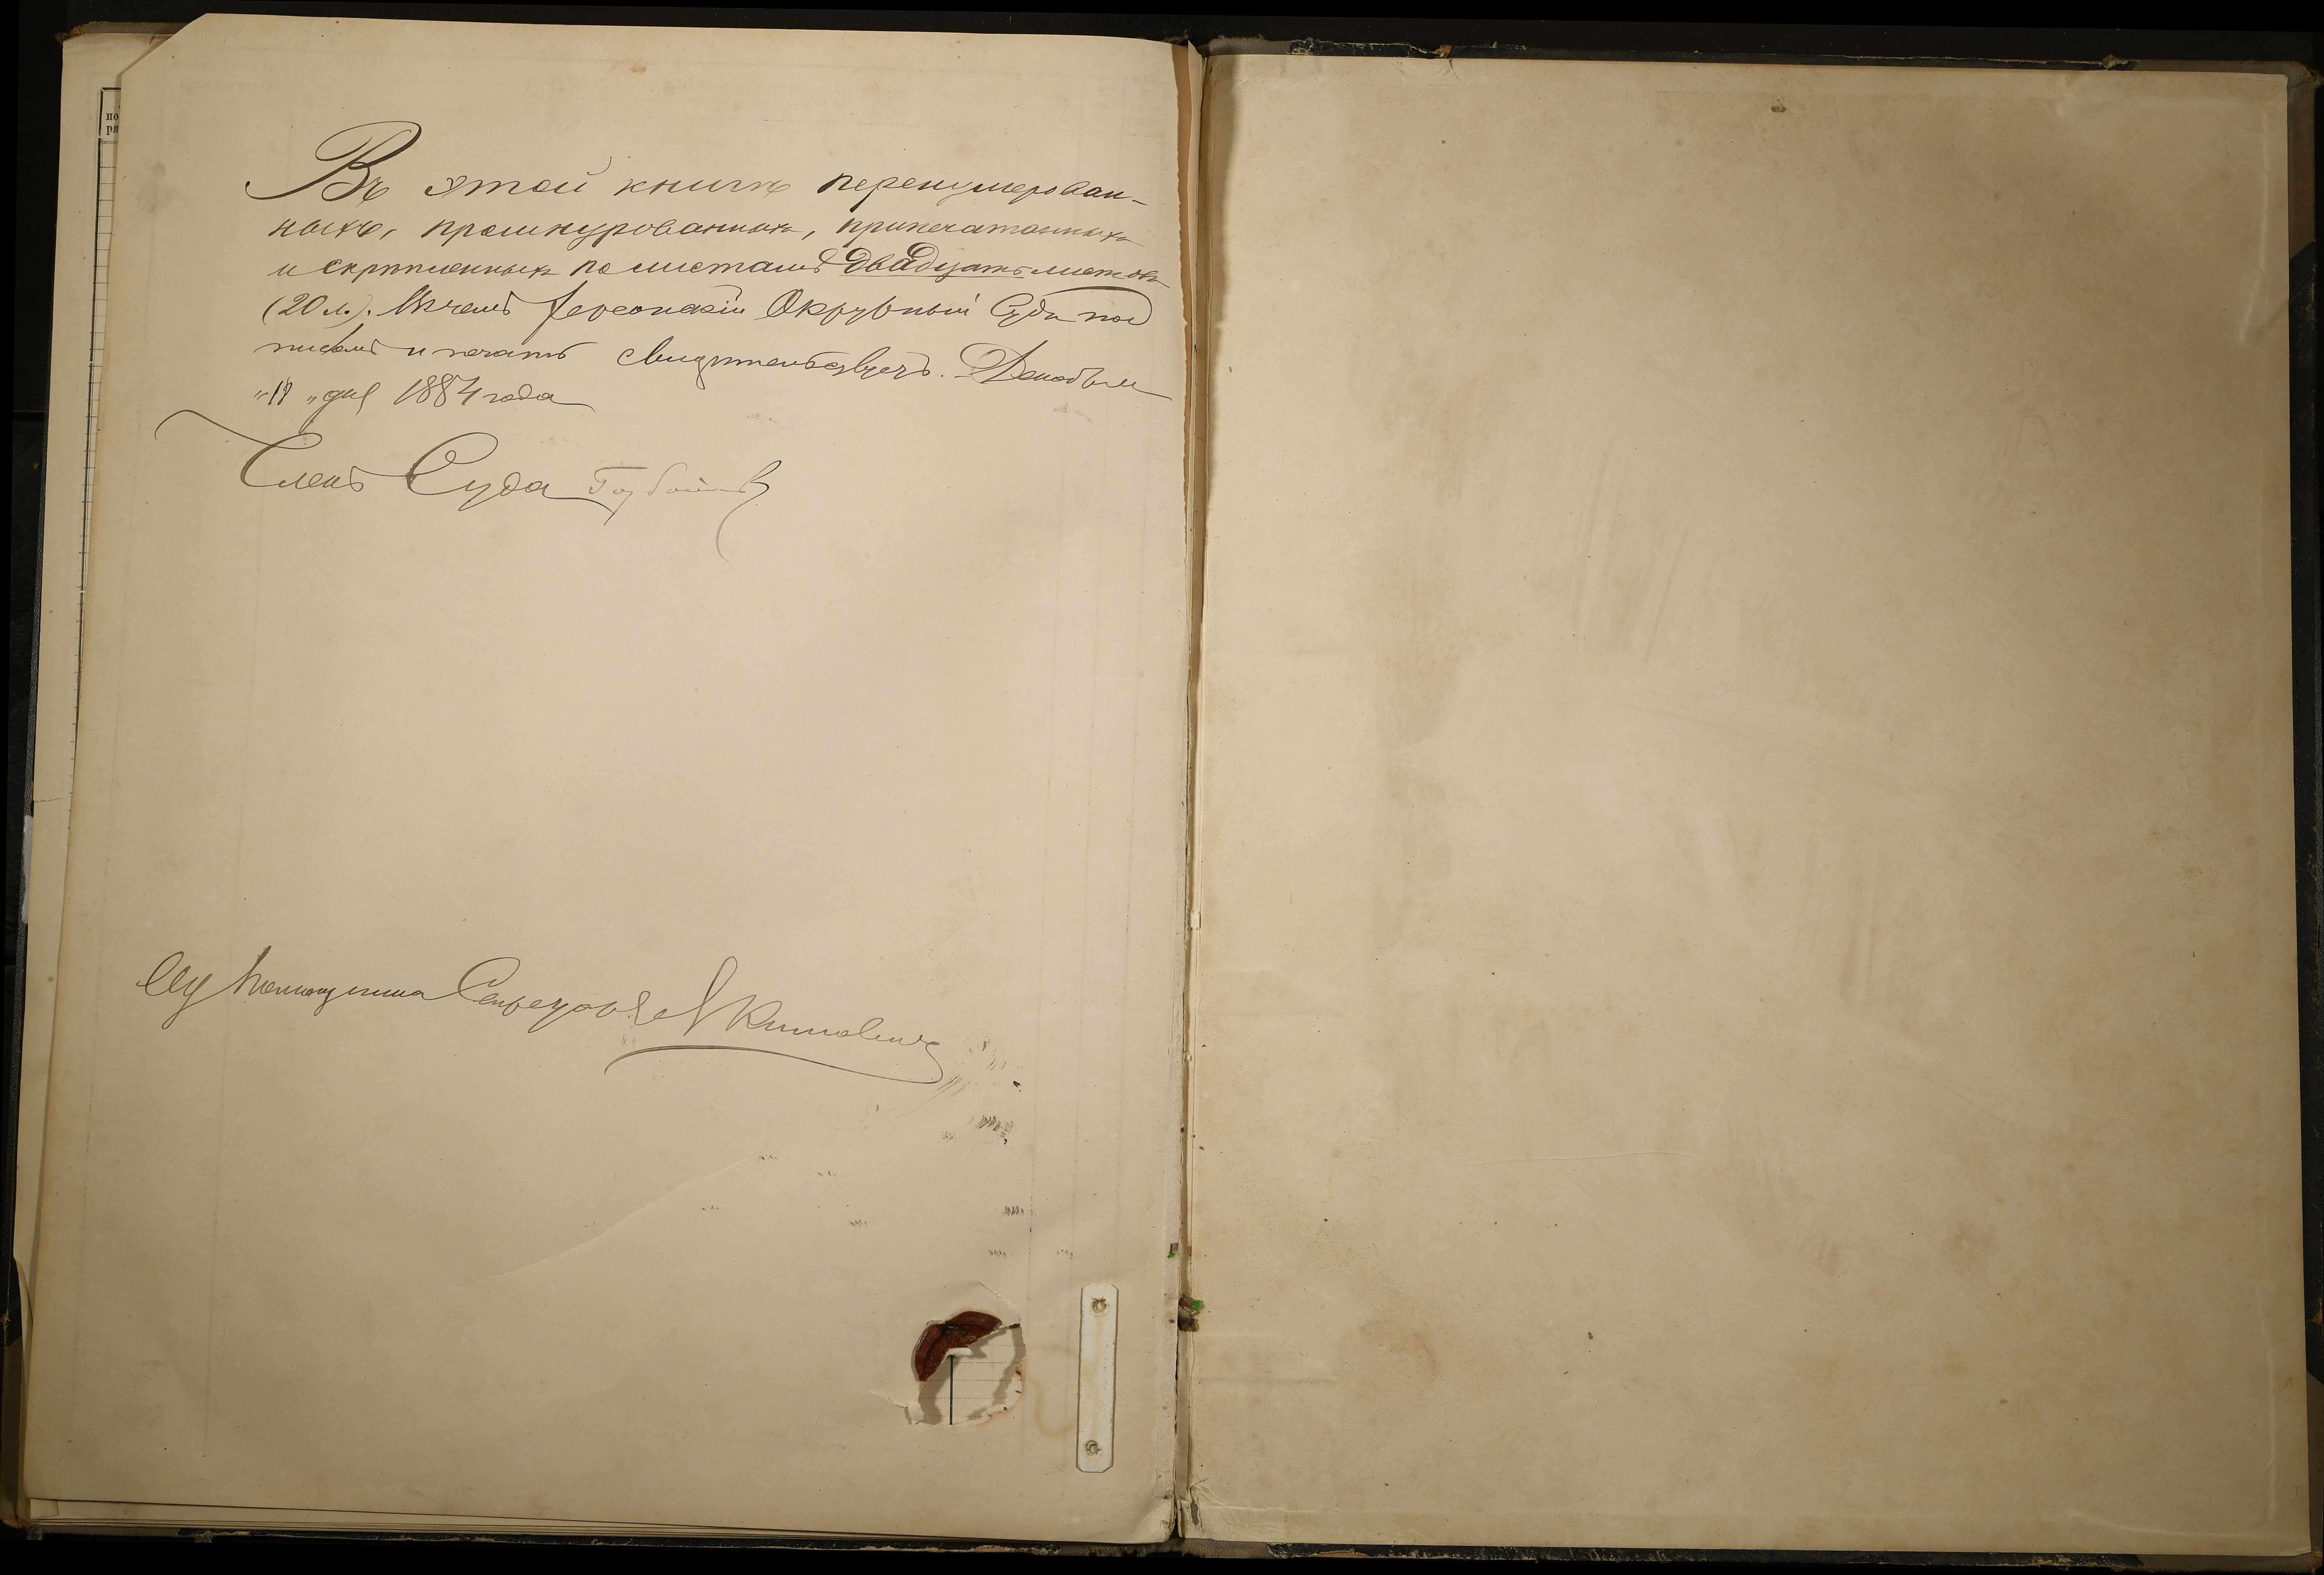 по
ря
Въ этой книгѣ перенумерован-
ныхъ, прошнурованныхъ, припечатанныхъ
и скрѣпленныхъ по листамъ двадцать листовъ
(20 л.). Въ чемъ Херсонскій Окружный Судъ под
писью и печатью свидѣтельствуетъ. Декабря
дня 1884 года
Членъ Суда
Помощника Секретаря